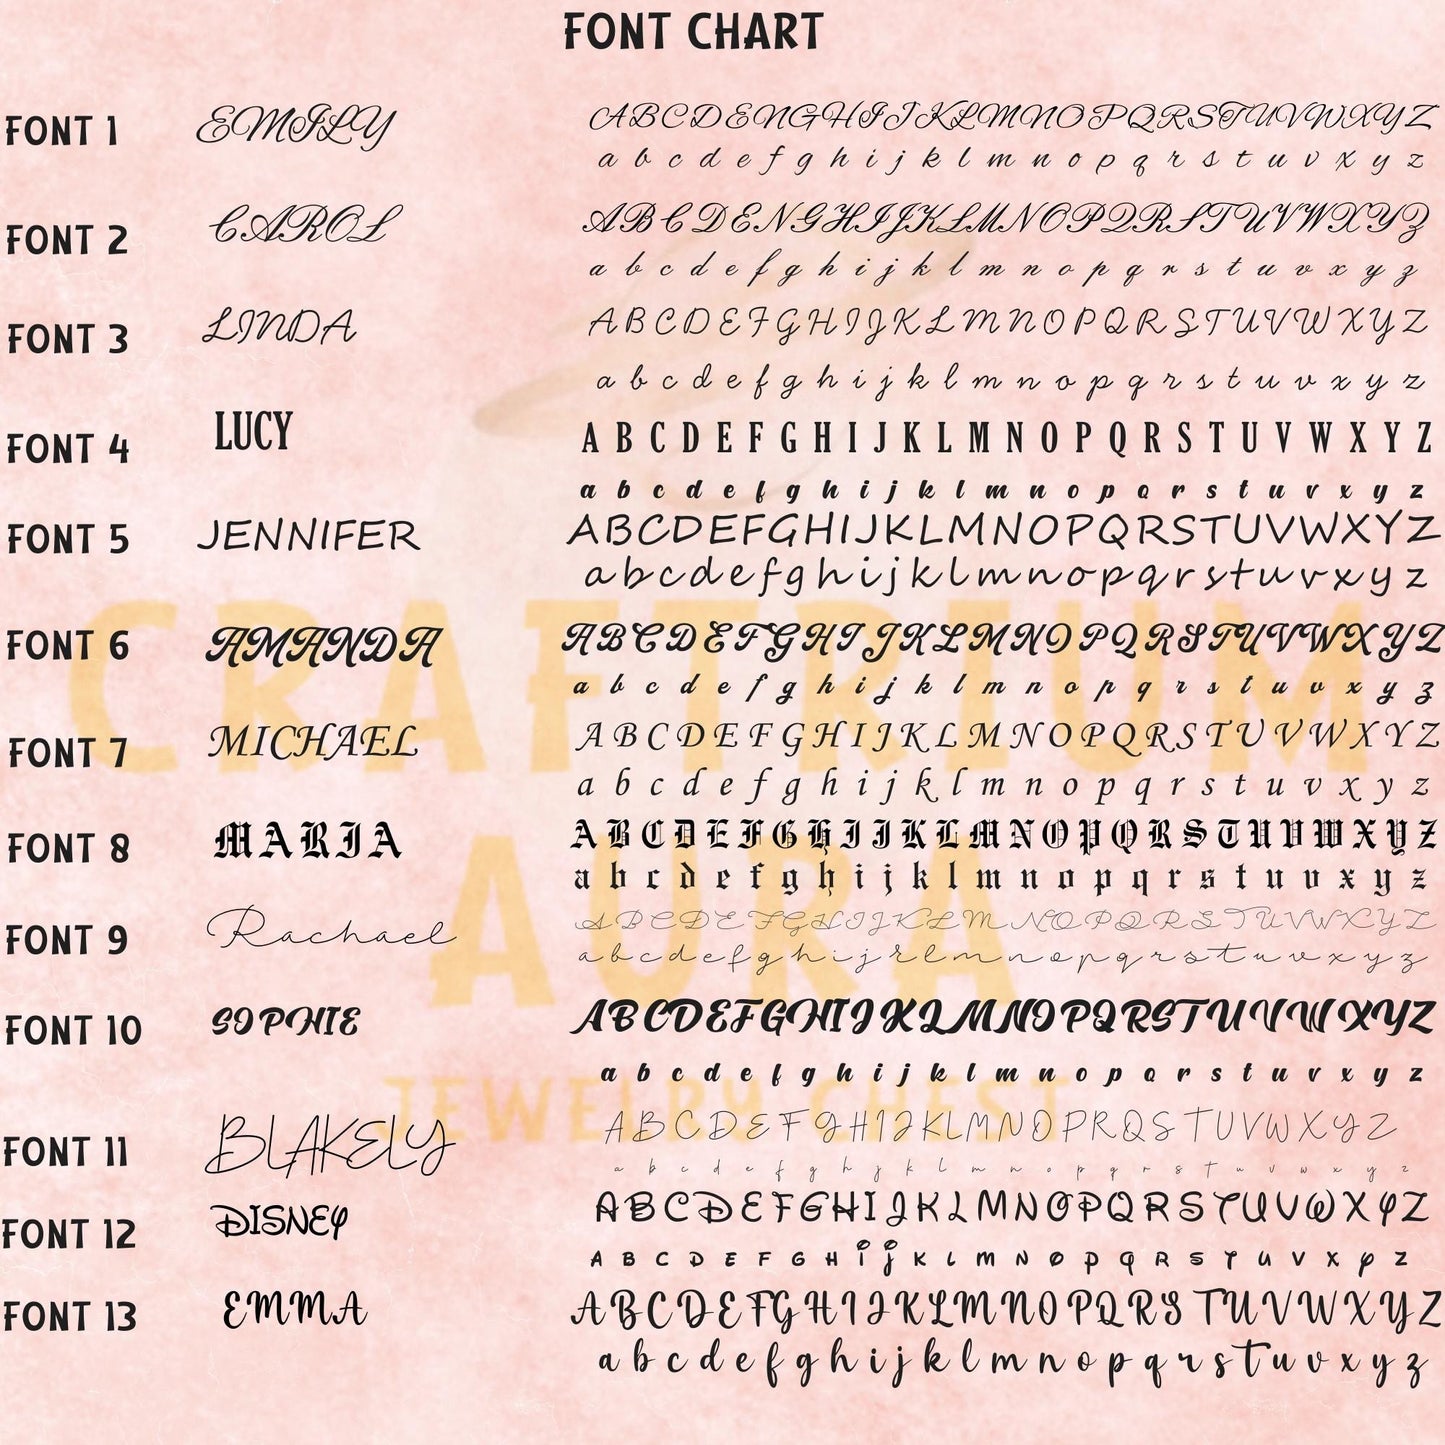 FONT CHART
FONT 1 EMILY ABCDENGHIJKLMNOPQRSTUVWXYZ
a b c d e f g h i j k l m n o p q r s t u v x y z
FONT 2 CAROL ABCDENGHIJKLMNOPQRSTUVWXYZ
a b c d e f g h i j k l m n o p q r s t u v x y z
FONT 3 LINDA ABCDEFGHIJKLMNOPQRSTUVWXYZ
a b c d e f g h i j k l m n o p q r s t u v x y z
FONT 4 LUCY A B C D E F G H I J K L M N O P Q R S T U V W X Y Z
a b c d e f g h i j k l m n o p q r s t u v x y z
FONT 5 JENNIFER ABCDEFGHIJKLMNOPQRSTUVWXYZ
abcdefghijklmnopqrstuvxyz
FONT 6 AMANDA ABCDEFGHIJKLMNOPQRSTUVWXYZ
a b c d e f g h i j k l m n o p q r s t u v x y z
CRAFTRIUM
FONT 7 MICHAEL ABCDEFGHIJKLMNOPQRSTUVWXYZ
a b c d e f g h i j k l m n o p q r s t u v x y z
FONT 8 MARIA A B C D E F G H I J K L M N O P Q R S T U V W X Y Z
a b c d e f g h i j k l m n o p q r s t u v x y z
AURA
FONT 9 Rachael ABCDEFGHIJKLMNOPQRSTUVWXYZ
a b c d e f g h i j k l m n o p q r s t u v x y z
FONT 10 SOPHIE ABCDEFGHIJKLMNOPQRSTUVWXYZ
a b c d e f g h i j k l m n o p q r s t u v x y z
JEWELRY CHEST
FONT 11 BLAKELY ABCDEFGHIJKLMNOPRQSTUVWXYZ
a b c d e f g h j k l m n o p q r s t u v w x y z
FONT 12 DISNEY ABCDEFGHIJKLMNOPQRSTUVWXYZ
A B C D E F G H i j K L M N O P Q R S T U V X Y Z
FONT 13 EMMA ABCDEFGHIJKLMNOPQRSTUVWXYZ
a b c d e f g h i j k l m n o p q r s t u v x y z